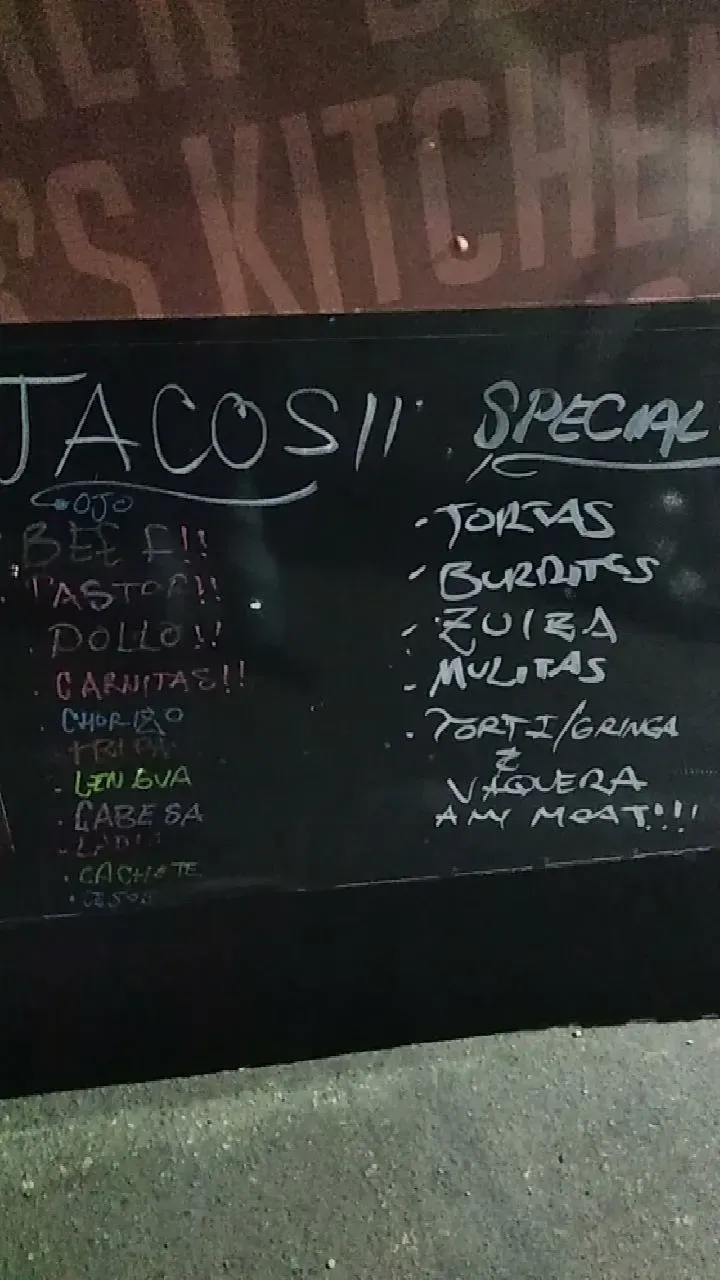 'S KITCHEN
TACOS!!
OJO
BEEF!!
PASTOR!!
POLLO!!
CARNITAS!!
CHORIZO
TRIPA
LENGUA
CABESA
CACHETE
SPECIAL
- TORTAS
- BURRITOS
- ZUIZA
- MULITAS
- TORTI/GRINGA
VAQUERA
ANY MEAT!!!